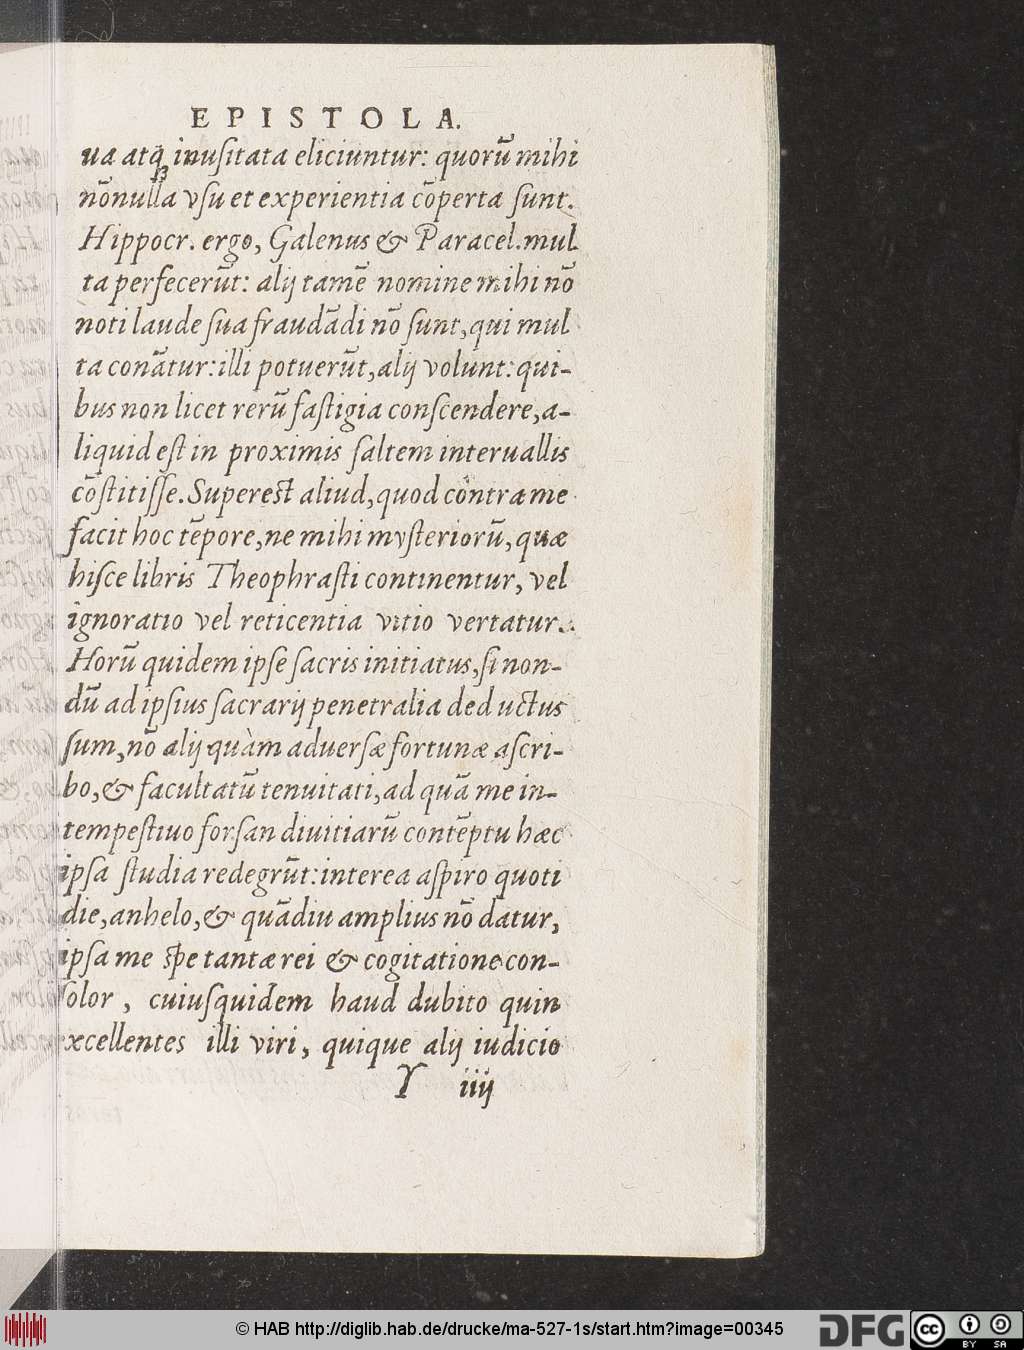 EPISTOLA.
ua atq́ꝫ inusitata eliciuntur: quorū mihi
nōnulla vsu et experientia cōperta sunt.
Hippocr. ergo, Galenus & Paracel. mul
ta perfecerūt: alij tamē nomine mihi nō
noti laude sua fraudādi nō sunt, qui mul
ta conātur: illi potuerūt, alij volunt: qui-
bus non licet rerū fastigia conscendere, a-
liquid est in proximis saltem interuallis
cōstitisse. Superest aliud, quod contra me
facit hoc tēpore, ne mihi mysteriorū, quæ
hisce libris Theophrasti continentur, vel
ignoratio vel reticentia vitio vertatur.
Horū quidem ipse sacris initiatus, si non-
dū ad ipsius sacrarij penetralia deductus
sum, nō alij quàm aduersæ fortunæ ascri-
bo, & facultatū tenuitati, ad quā me in-
tempestiuo forsan diuitiarū contēptu hæc
ipsa studia redegrūt: interea aspiro quoti
die, anhelo, & quādiu amplius nō datur,
ipsa me spe tantæ rei & cogitatione con-
solor, cuiusquidem haud dubito quin
excellentes illi viri, quique alij iudicio
Y iiij
© HAB http://diglib.hab.de/drucke/ma-527-1s/start.htm?image=00345
DFG
cc BY SA